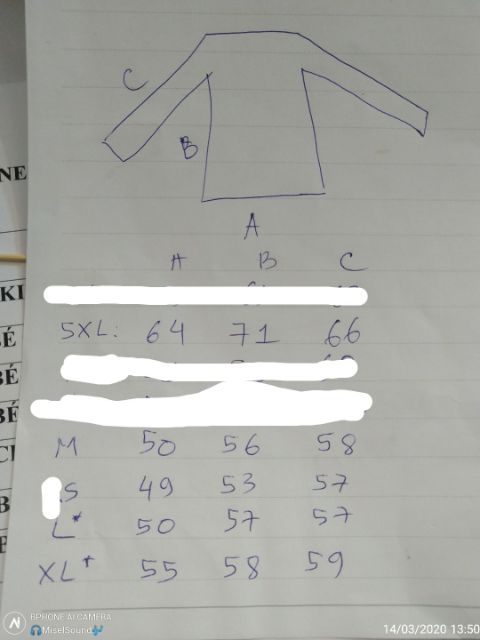 C
B
A
A B C
5XL: 64 71 66
M 50 56 58
S 49 53 57
L* 50 57 57
XL* 55 58 59
NE
KI
É
BÉ
BÉ
BPHONE AI CAMERA
MiselSound
14/03/2020 13:50